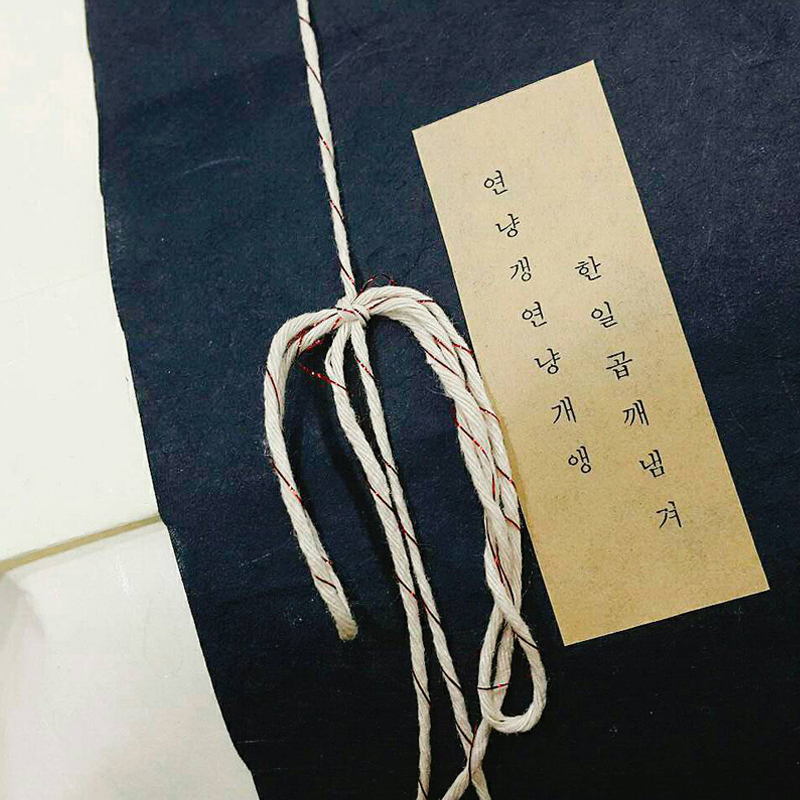 연냥갱연냥개앵
한일곱깨냄겨